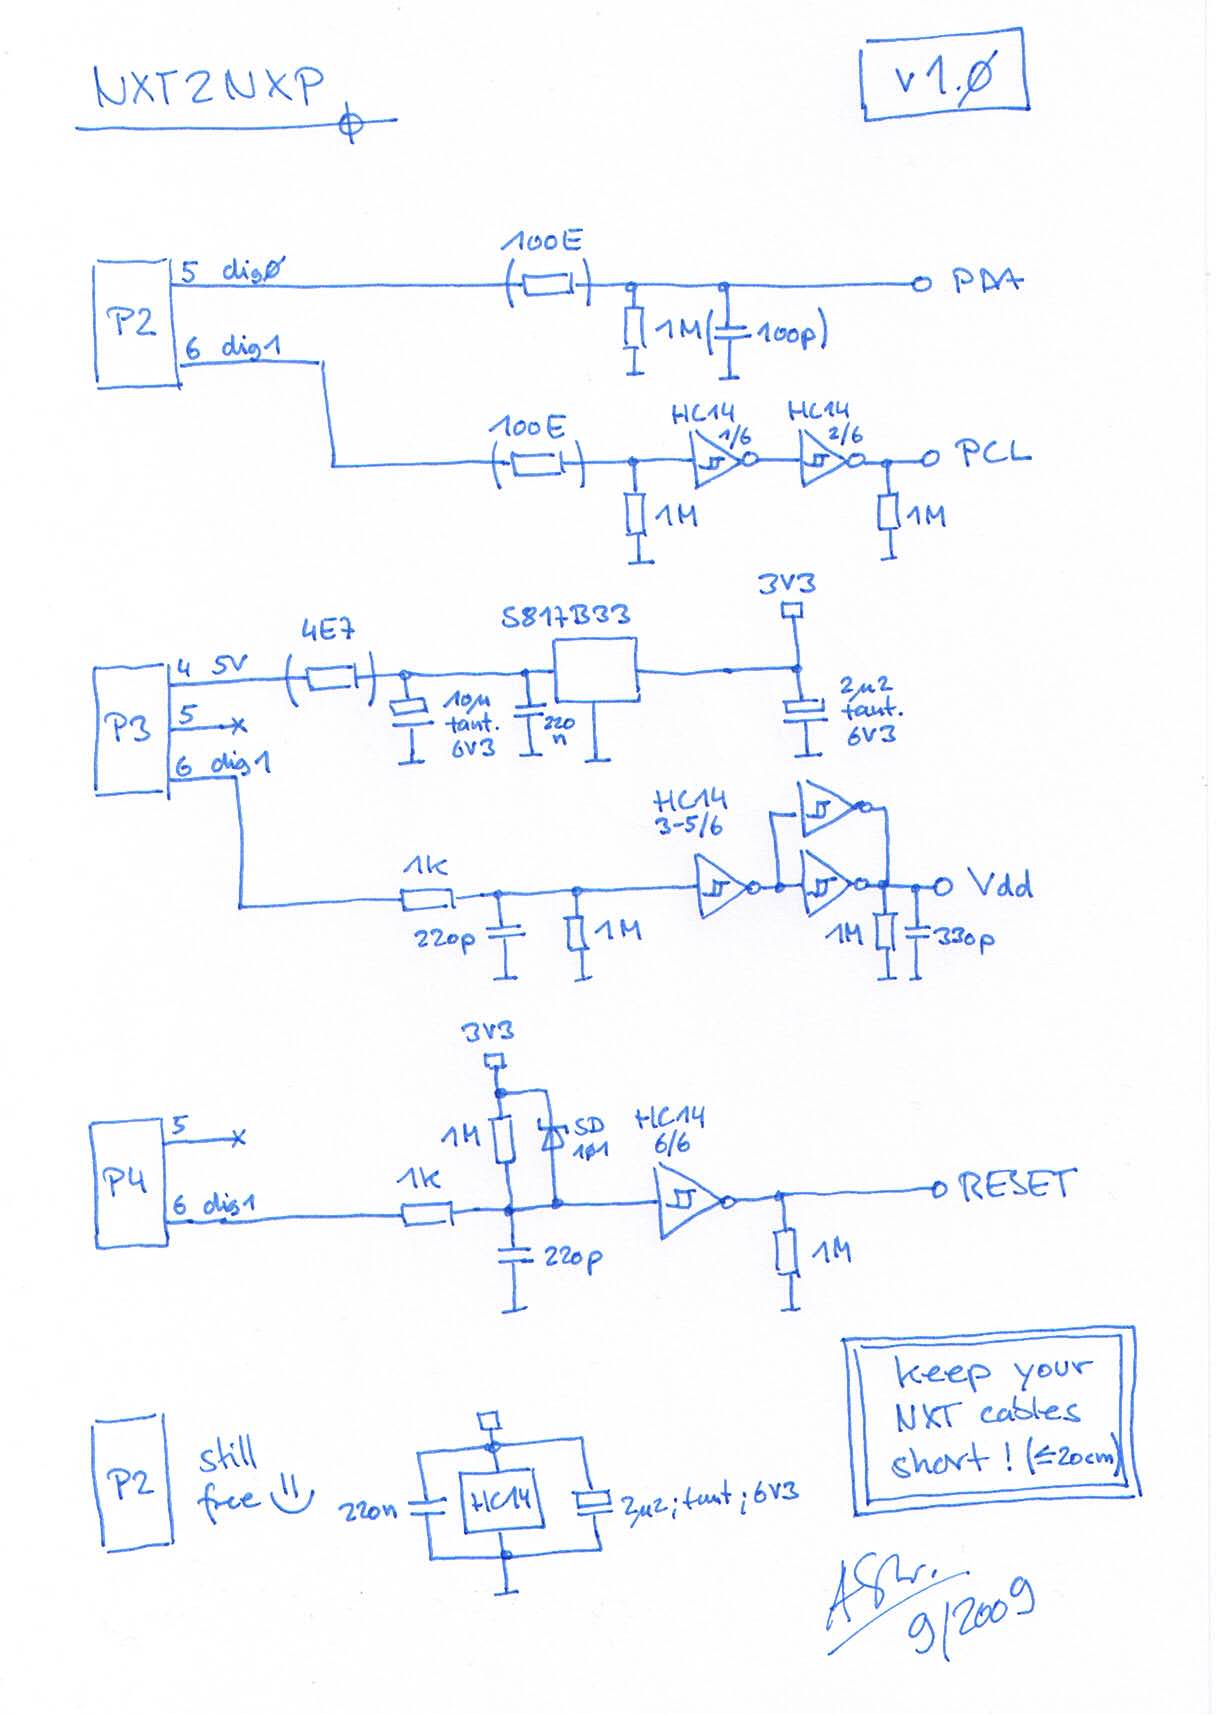 NXT2NXP
v1.0
100E
5 dig0
PDA
P2
1M
(100p)
6 dig1
HC14
1/6
HC14
2/6
100E
PCL
1M
1M
3V3
S817B33
4E7
4 5V
10µ
tant.
6V3
220
n
2µ2
tant.
6V3
P3
5
6 dig1
HC14
3-5/6
1K
Vdd
220p
1M
1M
330p
3V3
5
1M
SD
101
HC14
6/6
P4
1K
6 dig1
RESET
220p
1M
keep your
NXT cables
short! (≤20cm)
P2
still
free
220n
HC14
2µ2; tant; 6V3
9/2009